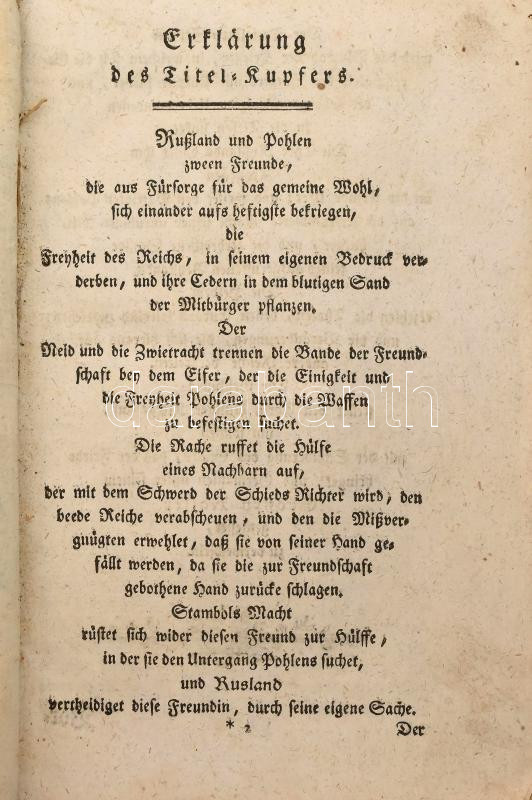 Erklärung
des Titel-Kupfers.
Rußland und Pohlen
zween Freunde,
die aus Fürsorge für das gemeine Wohl,
sich einander aufs heftigste bekriegen,
die
Freyheit des Reichs, in seinem eigenen Bedruck ver-
derben, und ihre Cedern in dem blutigen Sand
der Mitbürger pflanzen.
Der
Neid und die Zwietracht trennen die Bande der Freund-
schaft bey dem Eifer, der die Einigkeit und
die Freyheit Pohlens durch die Waffen
zu befestigen suchet.
Die Rache ruffet die Hülfe
eines Nachbarn auf,
der mit dem Schwerd der Schieds Richter wird, den
beede Reiche verabscheuen, und den die Mißver-
gnügten erwehlet, daß sie von seiner Hand ge-
fällt werden, da sie die zur Freundschaft
gebothene Hand zurücke schlagen.
Stambols Macht
rüstet sich wider diesen Freund zur Hülffe,
in der sie den Untergang Pohlens suchet,
und Rusland
vertheidiget diese Freundin, durch seine eigene Sache.
* 2 Der
darabanth